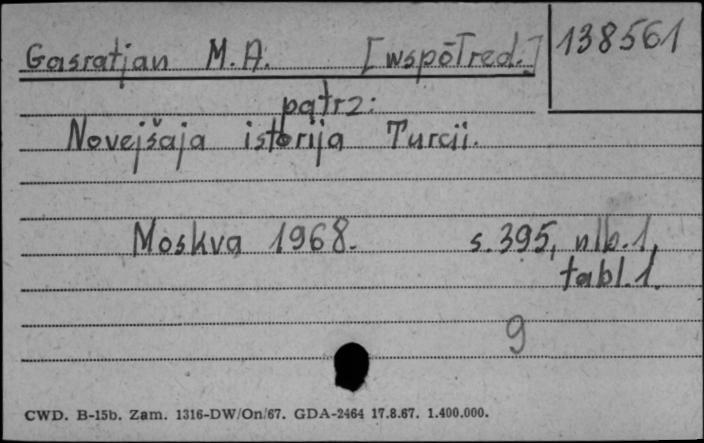 Gasratjan M.A. [współred.] 138561
patrz:
Novejšaja istorija Turcii.
Moskva 1968. s.395, nlb.1,
tabl.1.
9
CWD. B-15b. Zam. 1316-DW/On/67. GDA-2464 17.8.67. 1.400.000.